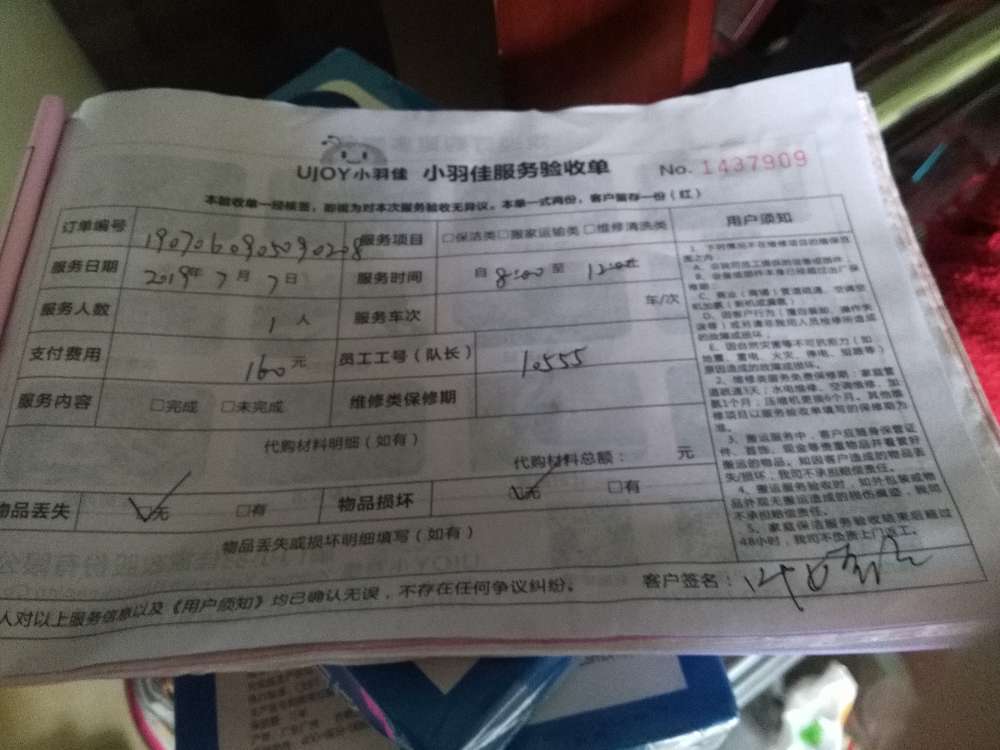 UJOY小羽佳 小羽佳服务验收单 No. 1437909
本验收单一经核签，即视为对本次服务验收无异议。本单一式两份，客户留存一份（红）
订单编号 1907060905090208 服务项目 □保洁类□搬家运输类□维修清洗类
服务日期 2019年 7月 7日 服务时间 自 8:00 至 12:00
服务人数 1 人 服务车次 车/次
支付费用 160元 员工工号（队长） 10555
服务内容 □完成 □未完成 维修类保修期
代购材料明细（如有）
代购材料总额： 元
物品丢失 □无 □有 物品损坏 □无 □有
物品丢失或损坏明细填写（如有）
人对以上服务信息以及《用户须知》均已确认无误，不存在任何争议纠纷。 客户签名：
用户须知
1、下列情况不在维修项目的维保范
围之内
C、商业（商铺）管道疏通、空调空
机加氨（新机或漏氨）
D、因客户行为（擅自装卸、操作失
误等）或对遭非我司人员检修所造成
的故障或损坏；
E、因自然灾害等不可抗力（如
地震、雷电、火灾、停电、短路等）
原因造成的故障或损坏。
2、维修类服务免费保修期：家庭管
道疏通3天；水电维修、空调维修、加
氨1个月；压缩机更换6个月。其他维
修项目以服务验收单填写的保修期为
准。
3、搬运服务中，客户应随身保管证
件、首饰、现金等贵重物品并看管好
搬运的物品。如因客户造成的物品丢
失/损坏，我司不承担赔偿责任。
4、搬运服务验收时，如外包装或物
品外观无搬运造成的损伤痕迹，我司
不承担赔偿责任。
5、家庭保洁服务验收结束后超过
48小时，我司不负责上门返工。